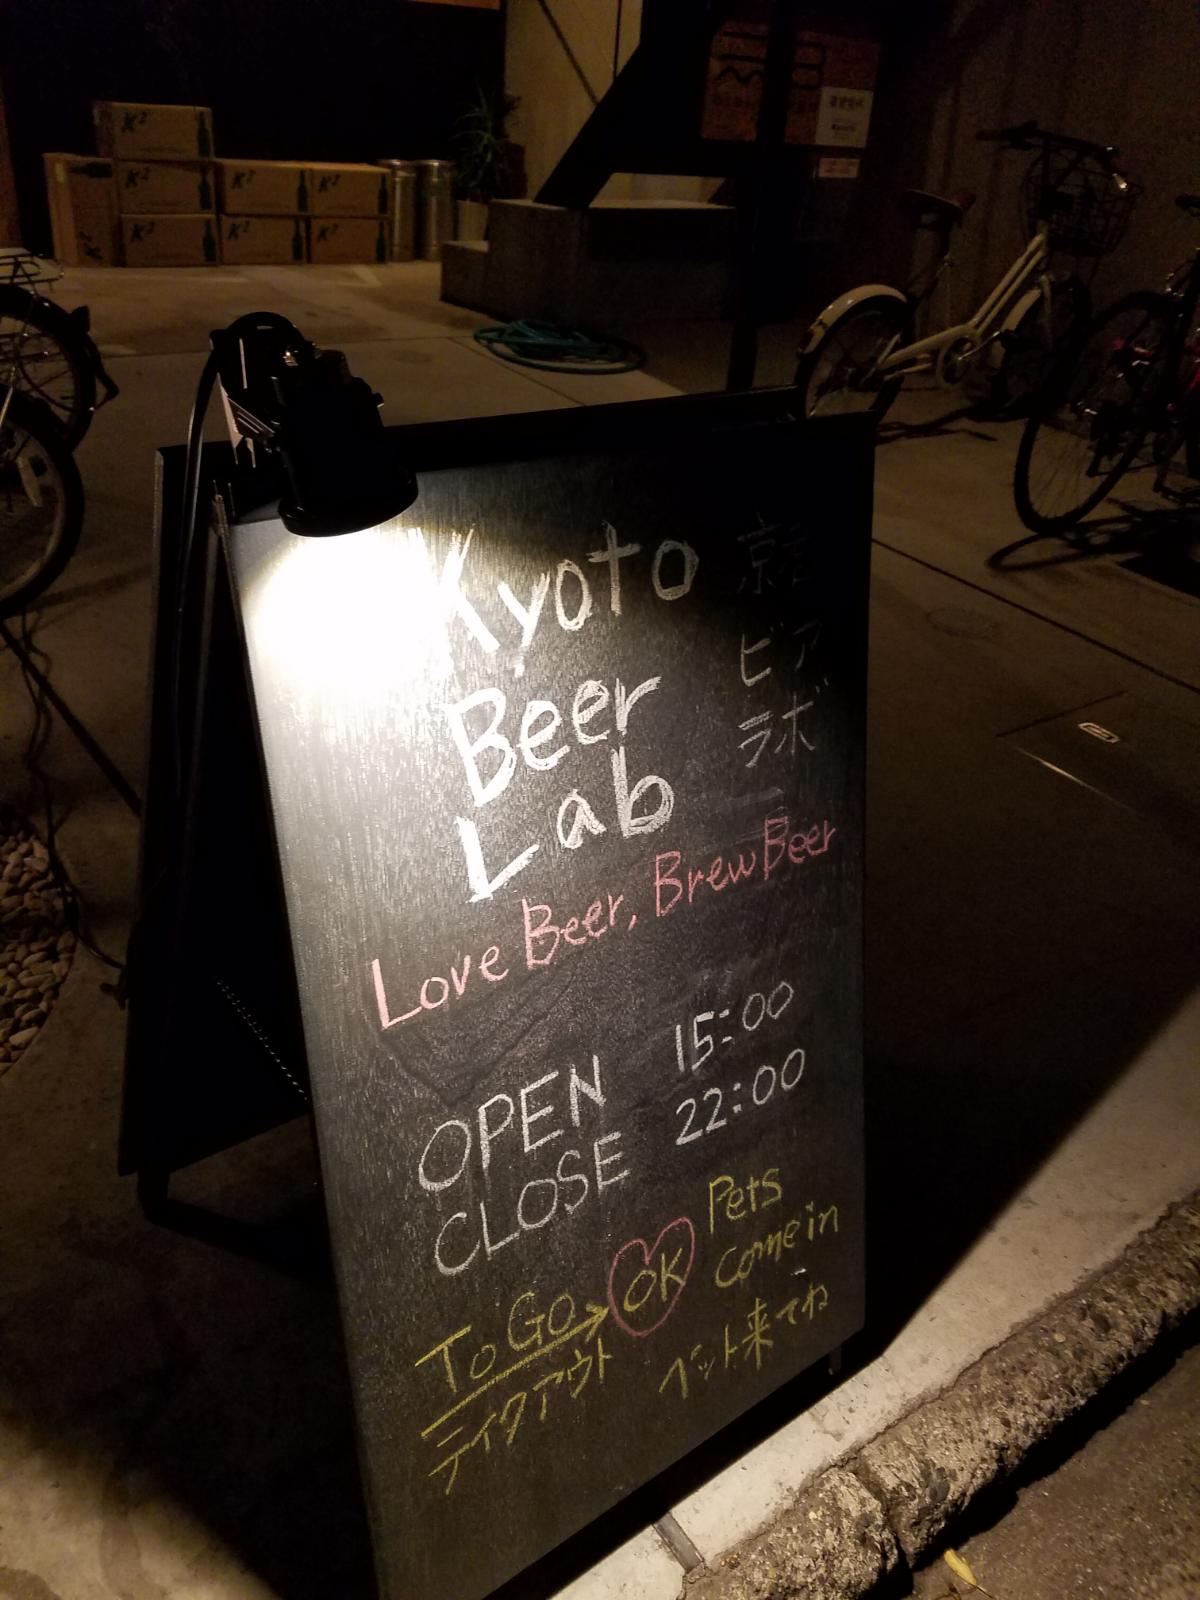 K²
K²
K²
K²
K²
K²
Kyoto
Beer
Lab
京都
ビア
ラボ
Love Beer, Brew Beer
OPEN 15:00
CLOSE 22:00
To Go → OK
テイクアウト
Pets
come in
ペット来てね